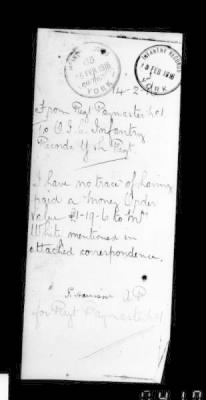 INFANTRY RECORD
5 FEB 1918
YORK
14-2
From Regt Paymaster No1
To O. I/C Infantry
Records York Regt.
I have no trace of having
paid a Money Order
value £1-19-6 to Mrs
White mentioned in
attached correspondence.
A P
for Regt Paymaster No1
0410